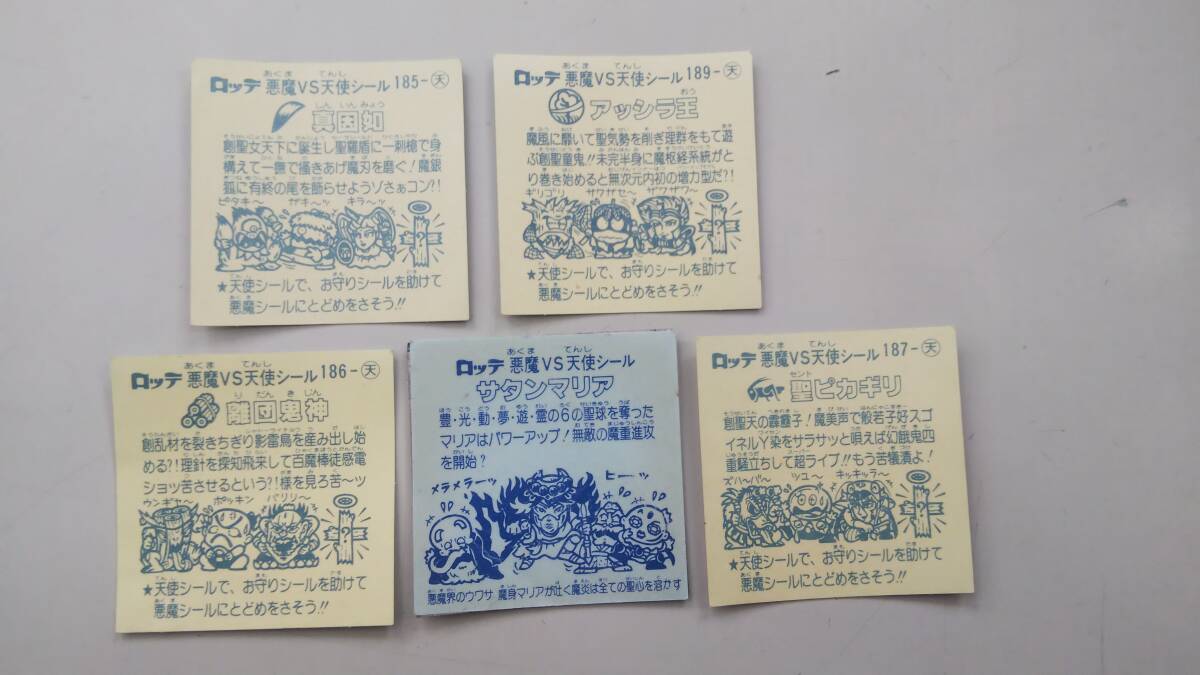 ロッテ 悪魔VS天使シール 185-天
真因如
創聖女天下に誕生し聖羅盾に一刺槍で身
構えて一撫で搔きあげ魔刃を磨ぐ!魔銀
狐に有終の尾を飾らせようゾさぁコン?!
ピタキ〜 ガキーッ キラ〜ッ
★天使シールで、お守りシールを助けて
悪魔シールにとどめをさそう!!
ロッテ 悪魔VS天使シール 189-天
アッシラ王
魔風に靡いて聖気勢を削ぎ理群をもて遊
ぶ創聖童鬼!!未完半身に魔枢経系統がと
り巻き始めると無次元内初の増力型だ?!
ギリゴリ サワザセ〜 ザワザワ〜
★天使シールで、お守りシールを助けて
悪魔シールにとどめをさそう!!
ロッテ 悪魔VS天使シール 186-天
離団鬼神
創乱材を裂きちぎり影雷鳥を産み出し始
める?!理針を探知飛来して百魔棒徒感電
ショッ苦させるという?!様を見ろ苦〜ッ
ウンギャ〜 ポッキン バリリ〜
★天使シールで、お守りシールを助けて
悪魔シールにとどめをさそう!!
ロッテ 悪魔VS天使シール
サタンマリア
豊・光・動・夢・遊・霊の6の聖球を奪った
マリアはパワーアップ!無敵の魔重進攻
を開始?
メラメラーッ ヒーッ
悪魔界のウワサ 魔身マリアが吐く魔炎は全ての聖心を溶かす
ロッテ 悪魔VS天使シール 187-天
聖ピカギリ
創聖天の霹靂子!魔美声で般若子好スゴ
イネルY染をサラサッと唄えば幻餓鬼四
重騒立ちして超ライブ!!もう苦犠漬よ!
ズハ〜バ〜 ツユ〜 キッキラ〜
★天使シールで、お守りシールを助けて
悪魔シールにとどめをさそう!!